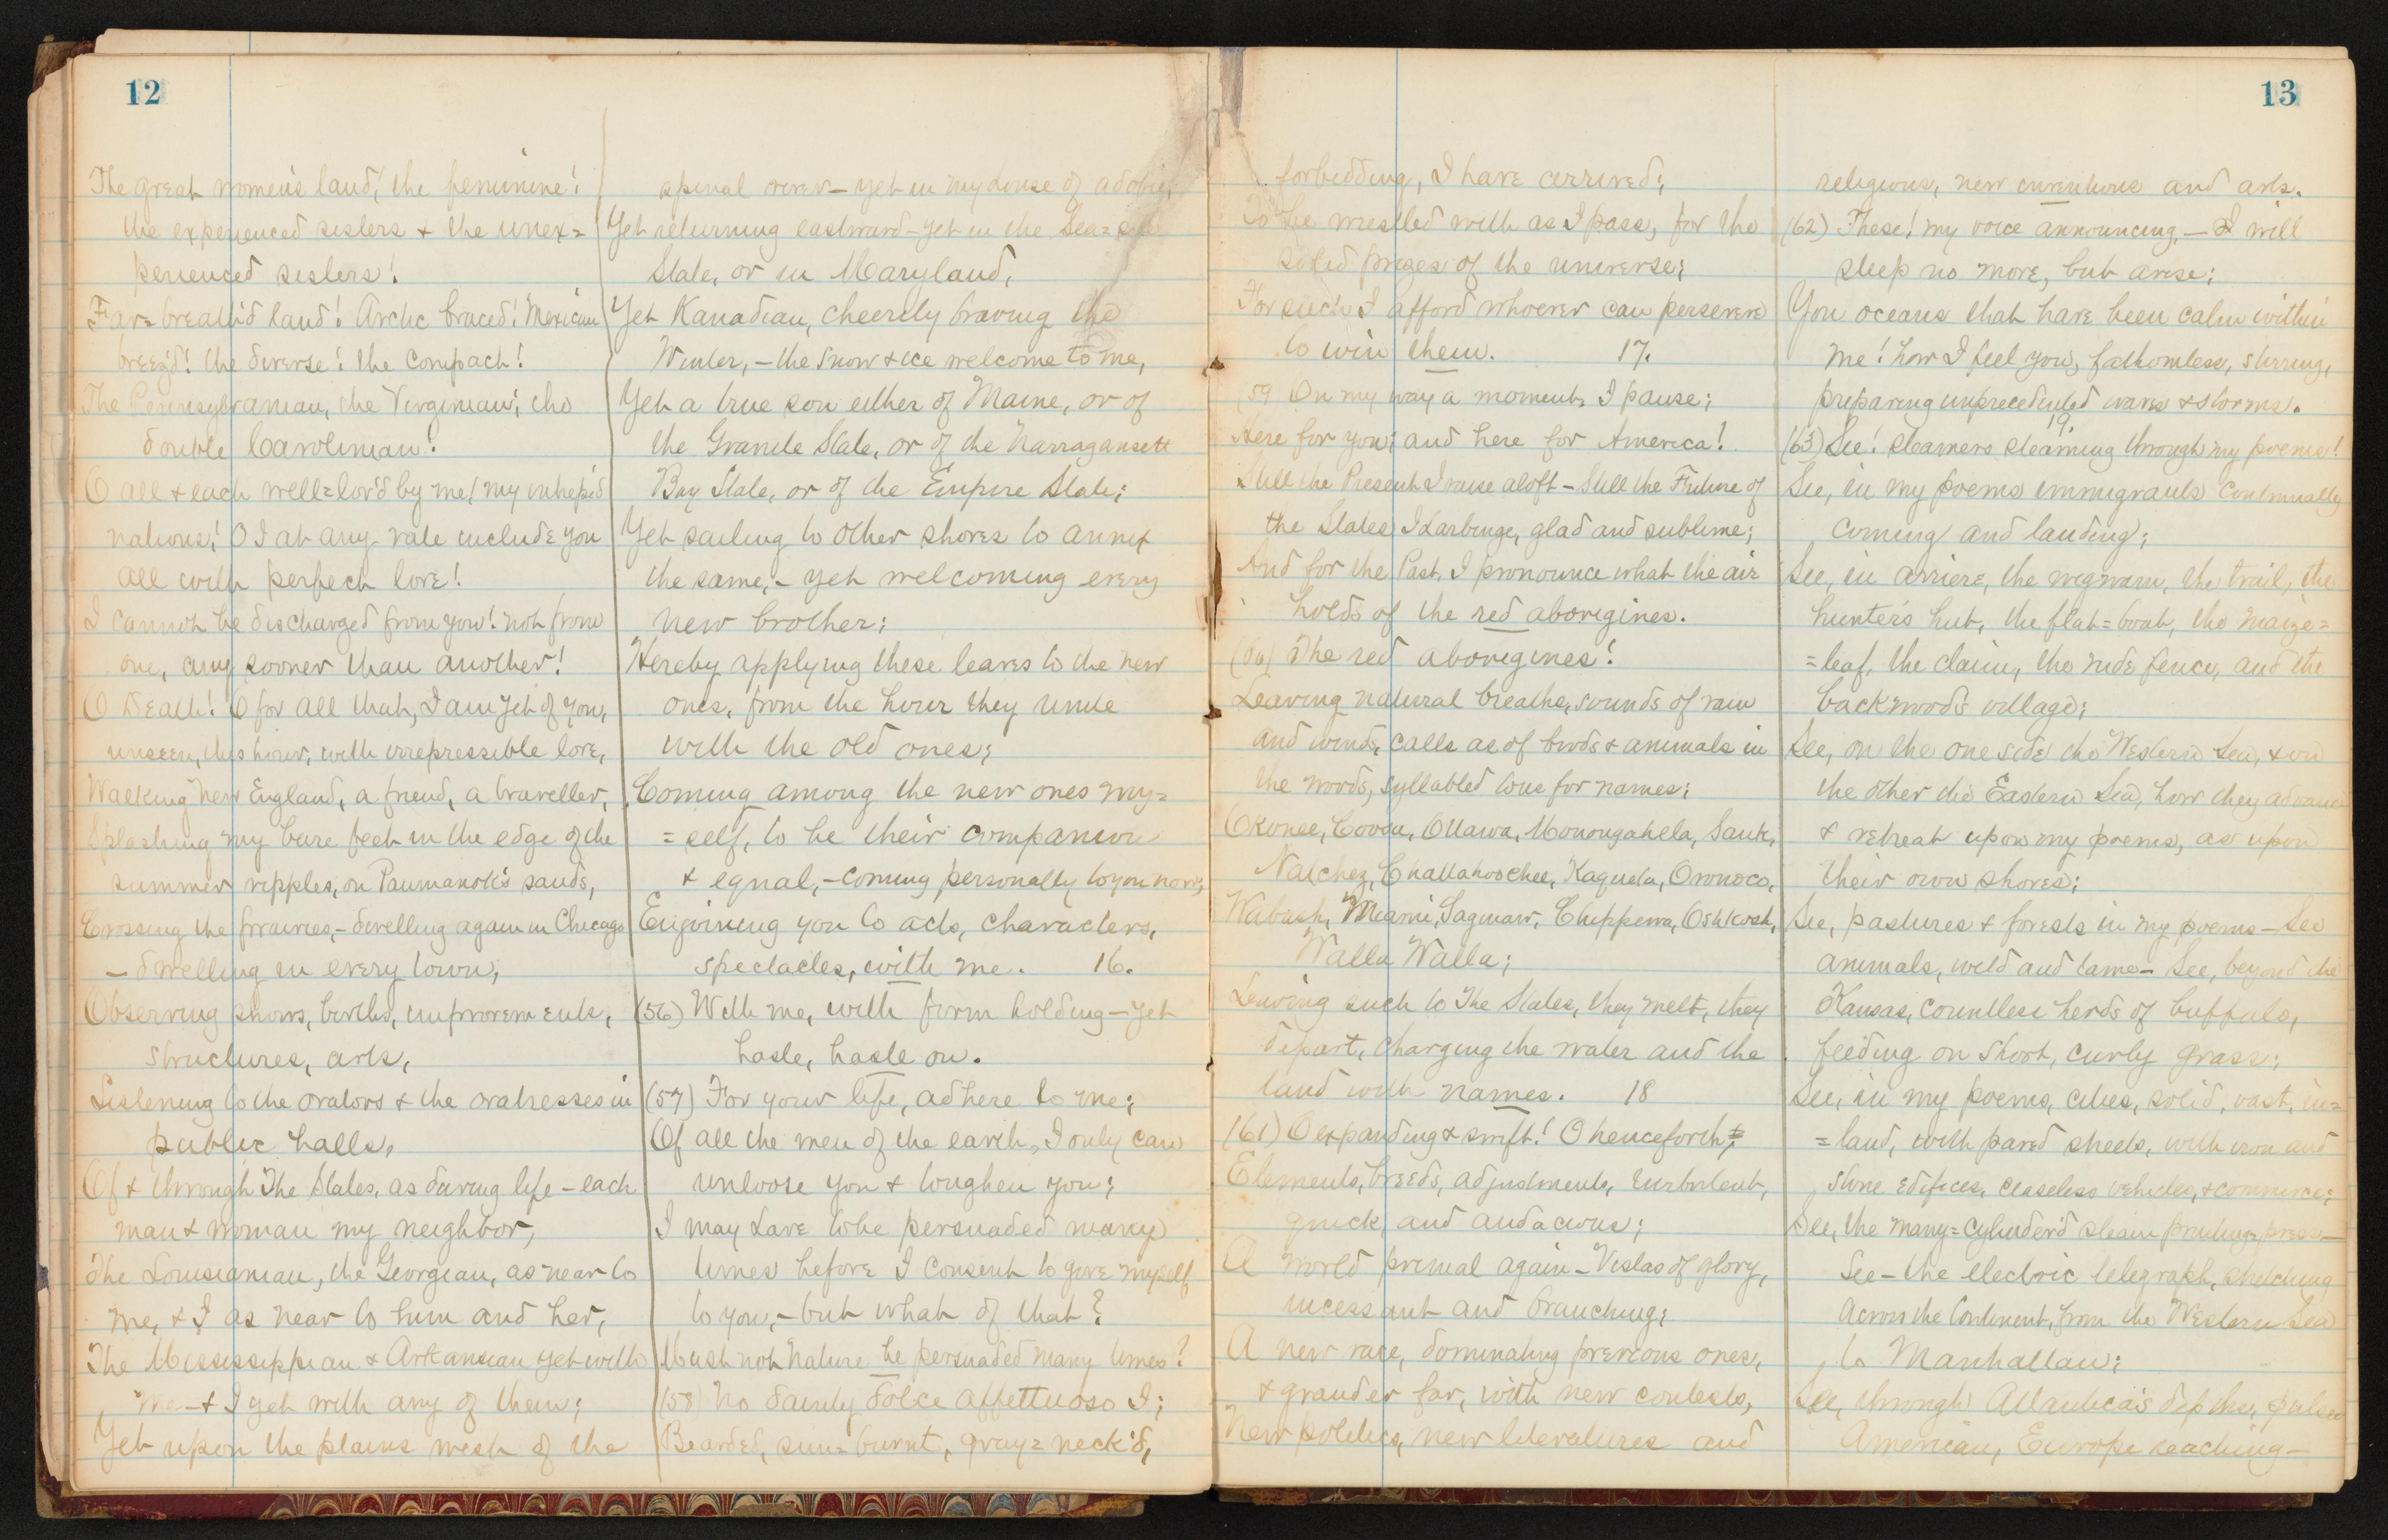 12
The great women's land! the feminine!
the experienced sisters & the unex=
perienced sisters!
Far=breath'd land! Arctic braced! Mexican
breez'd! the diverse! the compact!
The Pennsylvanian, the Virginian, the
double Carolinian!
O all & each well=lov'd by me! my intrepid
nations! O I at any rate include you
all with perfect love!
I cannot be discharged from you! not from
one, any sooner than another!
O Death! O for all that, I am yet of you,
unseen, this hour, with irrepressible love,
Walking New England, a friend, a traveller,
Splashing my bare feet in the edge of the
summer ripples, on Paumanok's sands,
Crossing the prairies,—dwelling again in Chicago
—dwelling in every town,
Observing shows, births, improvements,
structures, arts,
Listening to the orators & the oratresses in
public halls,
Of & through The States, as during life—each
man & woman my neighbor,
The Louisianian, the Georgian, as near to
me, & I as near to him and her,
The Mississippian & Arkansian yet with
me—& I yet with any of them;
Yet upon the plains west of the
spinal river—yet in my house of adobie,
Yet returning eastward—yet in the Sea=side
State, or in Maryland,
Yet Kanadian, cheerily braving the
Winter,—the snow & ice welcome to me,
Yet a true son either of Maine, or of
the Granite State, or of the Narragansett
Bay State, or of the Empire State;
Yet sailing to other shores to annex
the same,—yet welcoming every
new brother;
Hereby applying these leaves to the new
ones, from the hour they unite
with the old ones;
Coming among the new ones my=
=self, to be their companion
& equal,—coming personally to you now;
Enjoining you to acts, characters,
spectacles, with me. 16.
(56) With me, with firm holding—yet
haste, haste on.
(57) For your life, adhere to me;
Of all the men of the earth, I only can
unloose you & toughen you;
I may have to be persuaded many
times before I consent to give myself
to you,—but what of that?
Must not Nature be persuaded many times?
(58) No dainty dolce affettuoso I;
Bearded, sun=burnt, gray=neck'd,
13
forbidding, I have arrived;
To be wrestled with as I pass, for the
solid prizes of the universe;
For such I afford whoever can persevere
to win them. 17.
(59 On my way a moment, I pause;
Here for you; and here for America!
Still the Present I raise aloft—Still the Future of
the States I harbinge, glad and sublime;
And for the Past, I pronounce what the air
holds of the red aborigines.
(60) The red aborigines!
Leaving natural breaths, sounds of rain
and winds, calls as of birds & animals in
the woods, syllabled to us for names;
Okonee, Coosa, Ottawa, Monongahela, Sauk,
Natchez, Chattahoochee, Kaqueta, Oronoco,
Wabash, Miami, Saginaw, Chippewa, Oshkosh,
Walla Walla;
Leaving such to The States, they melt, they
depart, charging the water and the
land with names. 18
(61) O expanding & swift! O henceforth,
Elements, breeds, adjustments, turbulent,
quick, and audacious;
A world primal again—Vistas of glory,
incessant and branching;
A new race, dominating previous ones,
& grander far, with new contests,
New politics, new literatures and
religions, new inventions and arts.
(62) These! my voice announcing,—I will
sleep no more, but arise;
You oceans that have been calm within
me! how I feel you, fathomless, stirring,
preparing unprecedented waves & storms.
19
(63) See! steamers steaming through my poems!
See, in my poems immigrants continually
coming and landing;
See, in arriere, the wigwam, the trail, the
hunter's hut, the flat=boat, the maize=
=leaf, the claim, the rude fence, and the
backwoods village;
See, on the one side the Western Sea, & on
the other the Eastern Sea, how they advance
& retreat upon my poems, as upon
their own shores;
See, pastures & forests in my poems—See
animals, wild and tame—See, beyond the
Kansas, countless herds of buffalo,
feeding on short, curly grass;
See, in my poems, cities, solid, vast, in=
=land, with paved streets, with iron and
stone edifices, ceaseless vehicles, & commerce;
See, the many=cylinder'd steam printing=press—
See—the electric telegraph, stretching
across the Continent, from the Western Sea
to Manhattan;
See, through Atlantica's depths, pulses
American, Europe reaching—